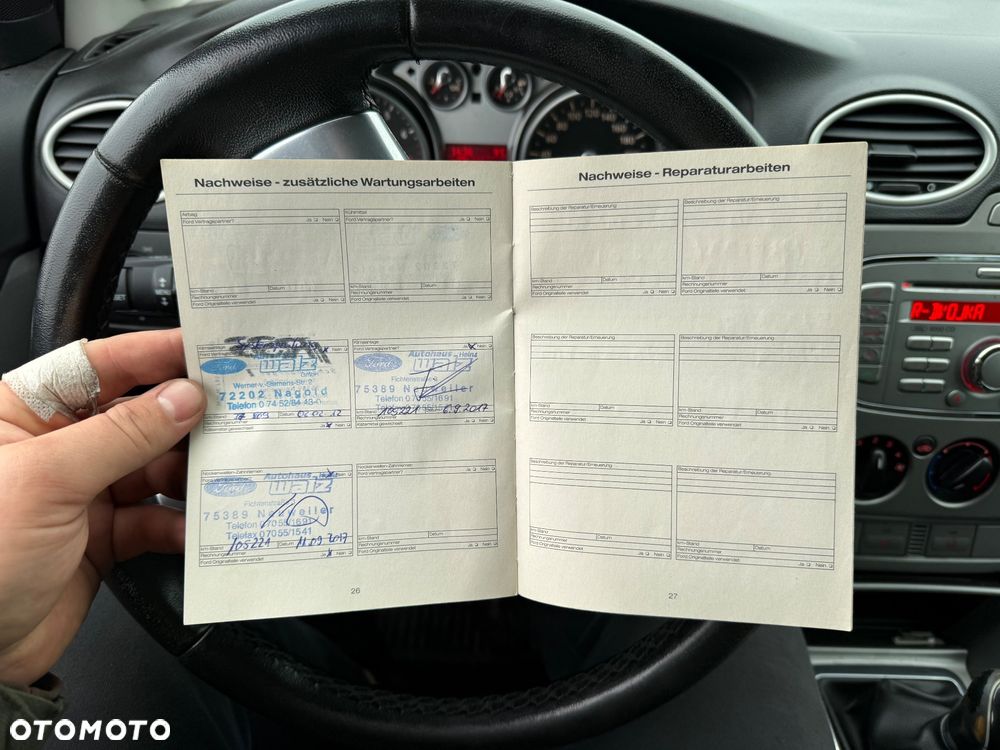 Nachweise - zusätzliche Wartungsarbeiten
Airbag:
Ford Vertragspartner? Ja Nein
km-Stand Datum
Rechnungsnummer
Ford Originalteile verwendet Ja Nein
Kühlmittel
Ford Vertragspartner? Ja Nein
km-Stand Datum
Rechnungsnummer
Ford Originalteile verwendet Ja Nein
Klimaanlage
Ford
Walz
Werner-v.-Siemens-Str. 2
72202 Nagold
Telefon 0 74 52/84 13-0
Datum 06.02.12
Rechnungsnummer
Kältemittel gewechselt Ja Nein
Klimaanlage
Ford Vertragspartner? Ja Nein
Autohaus Heinz
Ford Walz
Fichtenstraße
75389 Neuweiler
Telefon 07055/1691
km-Stand 105221
Kältemittel gewechselt Ja Nein
Nockenwellen-Zahnriemen
Ford Vertragspartner? Ja Nein
Autohaus Heinz
Ford Walz
Fichtenstraße
75389 Neuweiler
Telefon 07055/1691
Telefax 07055/1541
km-Stand 105221 Datum 11.09.2017
Rechnungsnummer
Ford Originalteile verwendet Ja Nein
Nockenwellen-Zahnriemen
Ford Vertragspartner? Ja Nein
km-Stand Datum
Rechnungsnummer
Ford Originalteile verwendet Ja Nein
26
Nachweise - Reparaturarbeiten
Beschreibung der Reparatur/Erneuerung
km-Stand Datum
Rechnungsnummer
Ford Originalteile verwendet Ja Nein
Beschreibung der Reparatur/Erneuerung
km-Stand Datum
Rechnungsnummer
Ford Originalteile verwendet Ja Nein
Beschreibung der Reparatur/Erneuerung
km-Stand Datum
Rechnungsnummer
Ford Originalteile verwendet Ja Nein
Beschreibung der Reparatur/Erneuerung
km-Stand Datum
Rechnungsnummer
Ford Originalteile verwendet Ja Nein
Beschreibung der Reparatur/Erneuerung
km-Stand Datum
Rechnungsnummer
Ford Originalteile verwendet Ja Nein
Beschreibung der Reparatur/Erneuerung
km-Stand Datum
Rechnungsnummer
Ford Originalteile verwendet Ja Nein
27
MENU
RESET
OTOMOTO